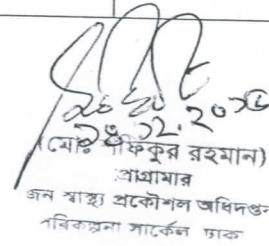 ২৪.১২.২০২৫
(মোঃ শফিকুর রহমান)
প্রোগ্রামার
জন স্বাস্থ্য প্রকৌশল অধিদপ্তর
পরিকল্পনা সার্কেল ঢাকা